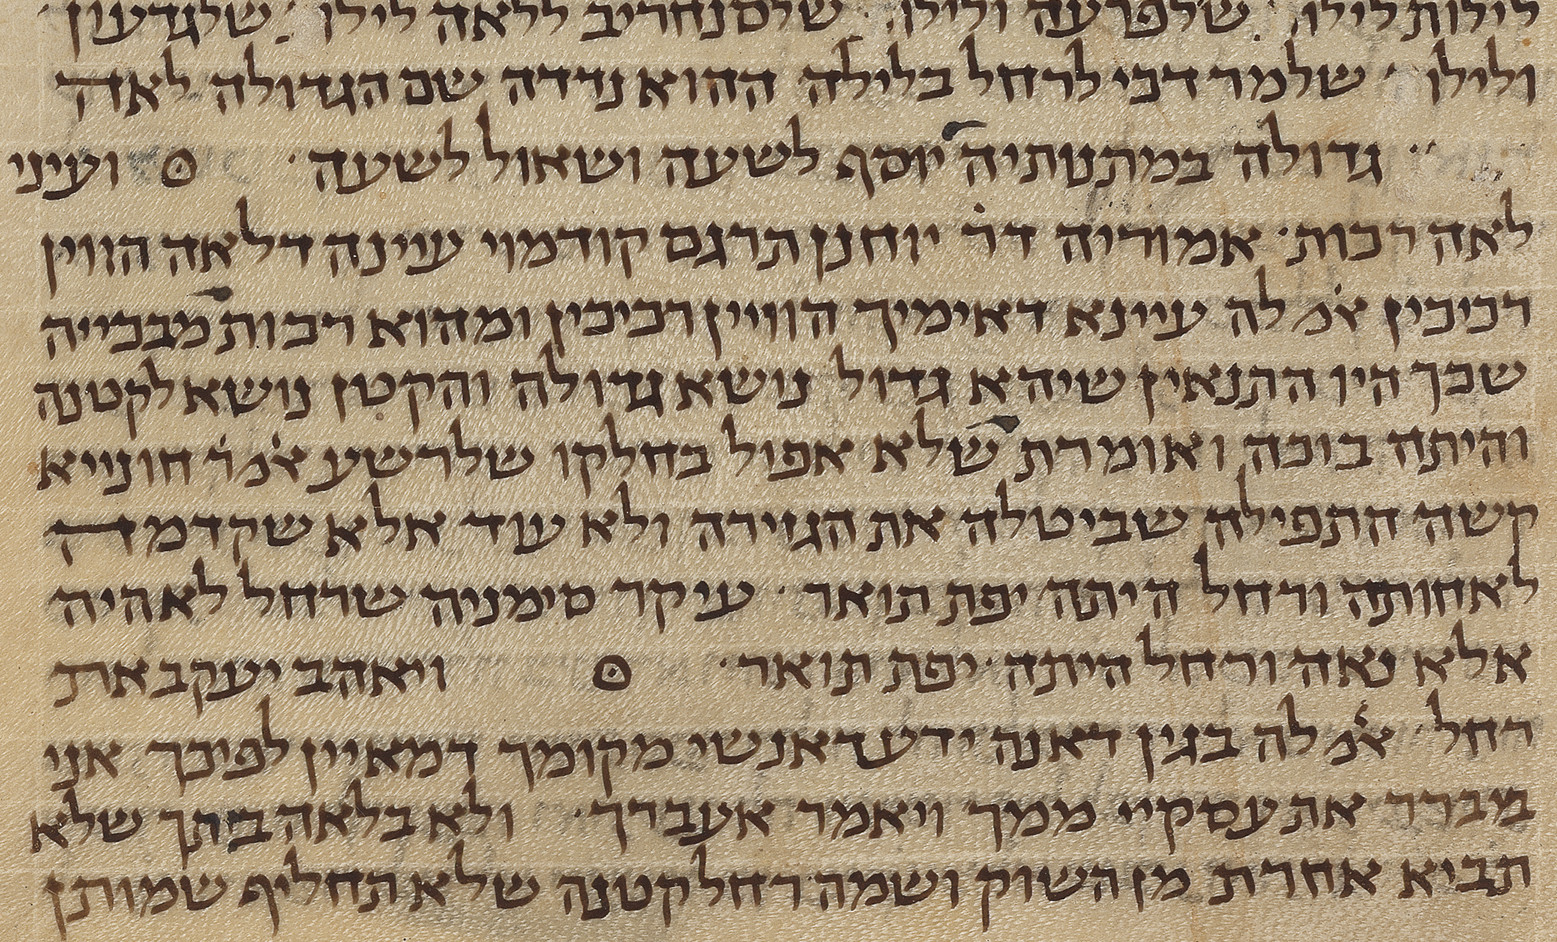 לילות לילו׳ · שלפרעה ולילו׳ · שלסנחריב ללאה לילו׳ · שלגדעון
ולילו׳ · שלמרדכי לרחל בלילה ההוא נדדה שנ׳ הגדולה לאה
גדולה במתנותיה יוסף לשעה ושאול לשעה · ועיני
לאה רכות · אמוריה דר׳ יוחנן תרגם קודמוי עיינה דלאה הווין
רכיכין א׳מ׳ לה עיינא דאימיך הוויין רכיכין ומהוא רכות מבכייה
שכך היו התנאין שיהא גדול נושא גדולה והקטן נושא לקטנה
והיתה בוכה ואומרת שלא אפול בחלקו שלרשע א׳מ׳ר׳ חונייא
קשה התפילה שביטלה את הגזירה ולא עוד אלא שקדמה
לאחותה ורחל היתה יפת תואר · עיקר סימניה שרחל לא היה
אלא נאה ורחל היתה יפת תואר · ויאהב יעקב את
רחל · א׳מ׳ לה בגין דאנה ידע דאנשי מקומך דמאיין לפיכך אני
מברר את עסקיי ממך ויאמר אעבדך · ולא בלאה ביתך שלא
תביא אחרת מן השוק ושמה רחל קטנה שלא תחליף שמותן